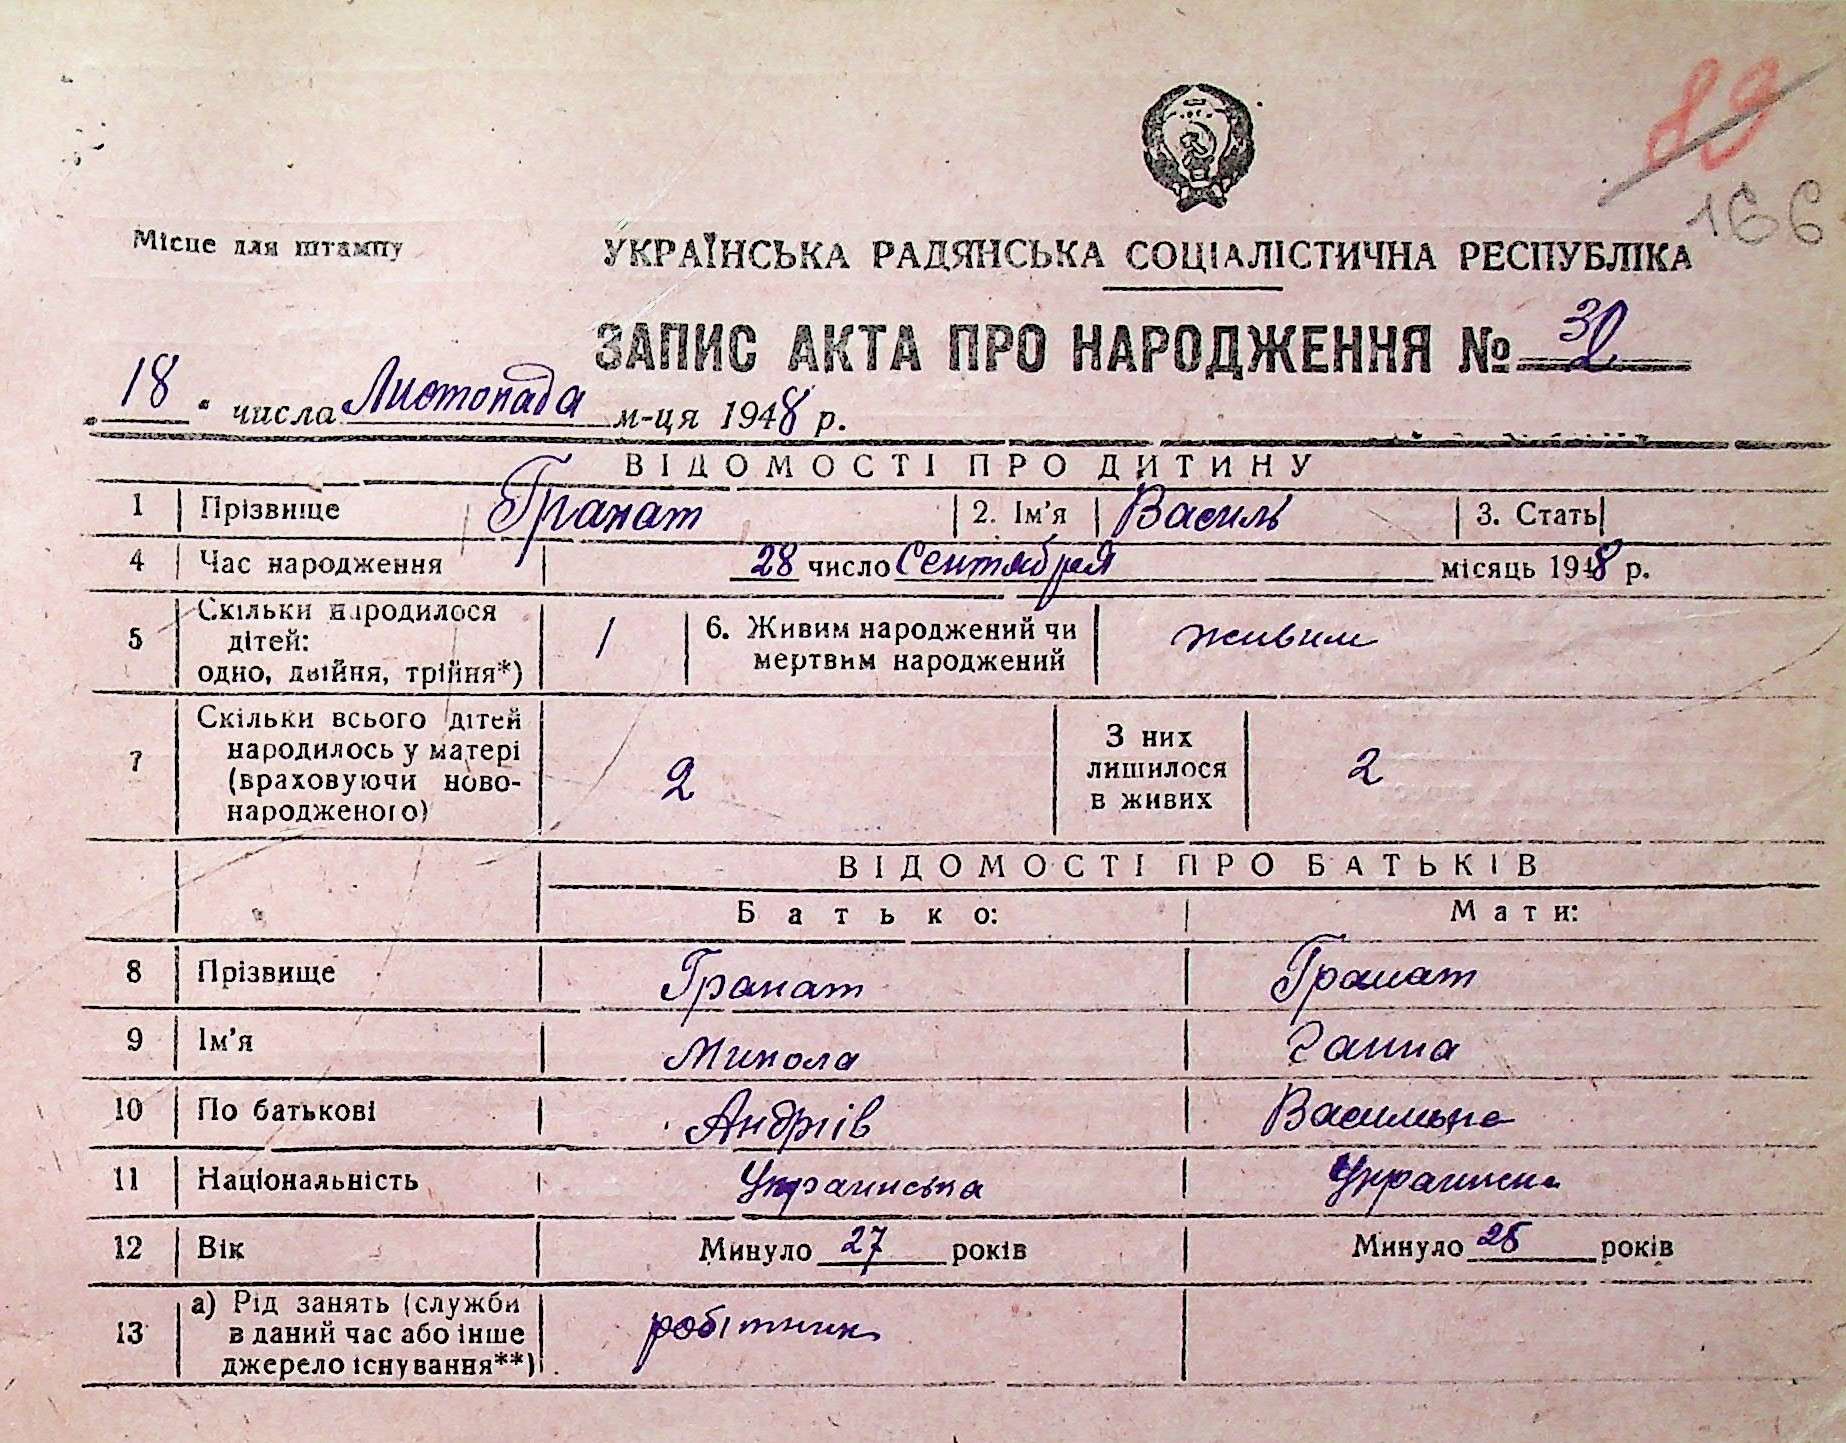 89
166
Місце для штампу
УКРАЇНСЬКА РАДЯНСЬКА СОЦІАЛІСТИЧНА РЕСПУБЛІКА
ЗАПИС АКТА ПРО НАРОДЖЕННЯ № 32
„18“ числа Листопада м-ця 1948 р.
ВІДОМОСТІ ПРО ДИТИНУ
1 Прізвище Гранат 2. Ім'я Василь 3. Стать
4 Час народження 28 число Сентября місяць 1948 р.
5 Скільки народилося
дітей:
одно, двійня, трійня*) 1 6. Живим народжений чи
мертвим народжений живим
7 Скільки всього дітей
народилось у матері
(враховуючи ново-
народженого) 2 З них
лишилося
в живих 2
ВІДОМОСТІ ПРО БАТЬКІВ
Батько: Мати:
8 Прізвище Гранат Гранат
9 Ім'я Микола Ганна
10 По батькові Андріів Васильвна
11 Національність Украинська
12 Вік Минуло 27 років Минуло 25 років
13 а) Рід занять (служби
в даний час або інше
джерело існування**) робітник